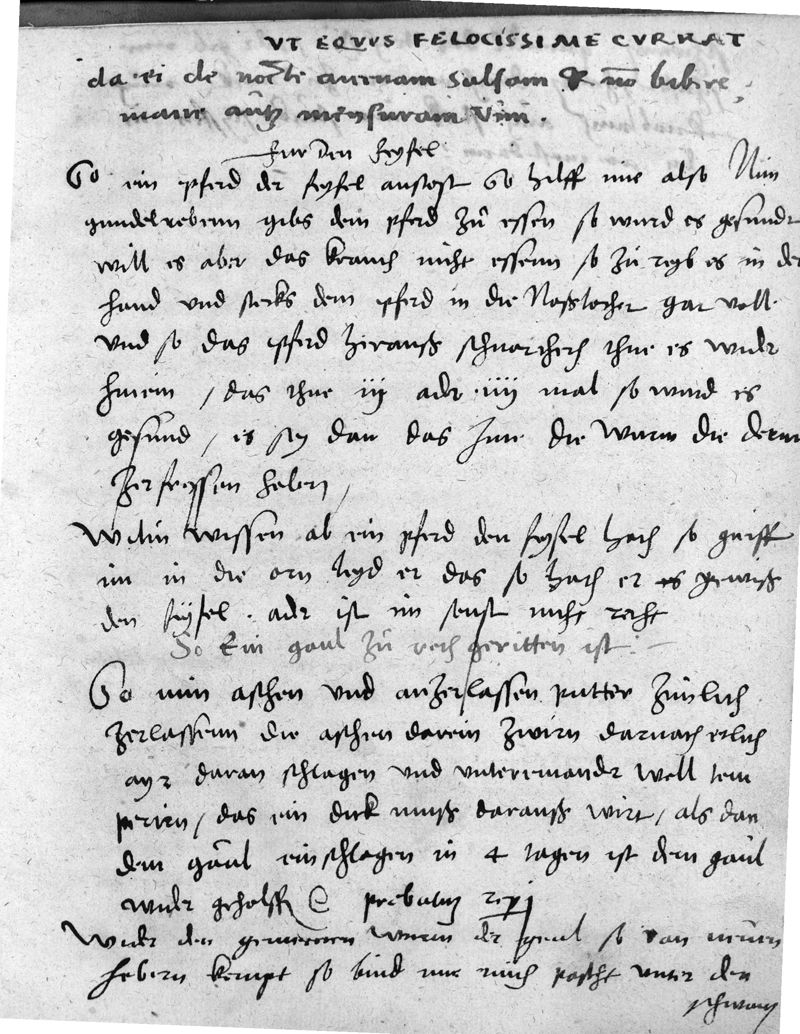 VT EQVVS FELOCISSIME CVRRAT
da ei de nocte auenam salsam & nō bibere
mane autz mensuram vini .
Fur den feyfel
So ein pferd der feyfel anstost So hilff ime also Nim
gundelrebenn gibs dem pferd zu essen so wurd es gesundt
will es aber das krauth nicht essenn so zu reyb es in der
hand vnd stecks dem pferd in die Naßlocher gar voll
vnd so das pferd heraußs schnarcheth thue es wider
hinein / das thue iij ader iiij mal so wurd es
gesund / es sey dan das Ime die wurm die derm
zerfressen haben /
Wiltu wissen ab ein pferd den feyfel hath so greiff
im in die orn leyd er das so hath er es gewiß
den feyfel . ader ist im sonst nicht recht
So Ein gaul zu rech geritten ist
So nim aschen vnd anzerlassen putter zimlich
zerlassenn die aschen darein zwirn darnach etlich
ayr daran schlagen vnd vntereinandr woll tem
perirn / das ein dick muß darauß wirt / als dan
dem gaul einschlagen in 4 tagen ist dem gaul
widr geholff probatum
Wider den wurm der geul so van
habern kompt so bind ime vnter den
schwantz